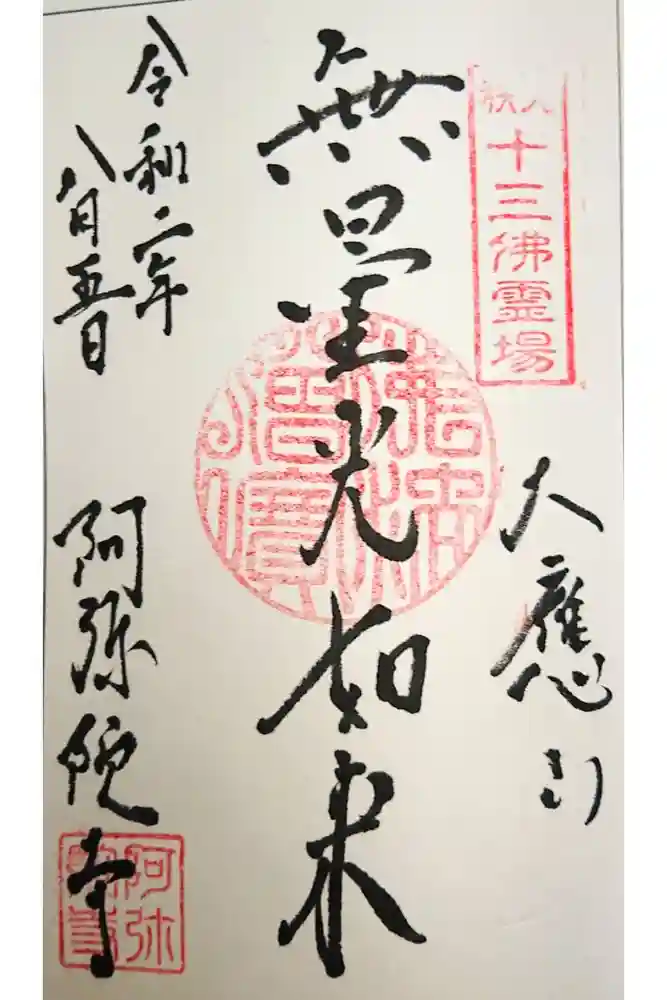 十三佛霊場
大應山
無量光如来
佛法僧寶
令和二年
八月五日
阿弥陀寺
阿弥
陀寺